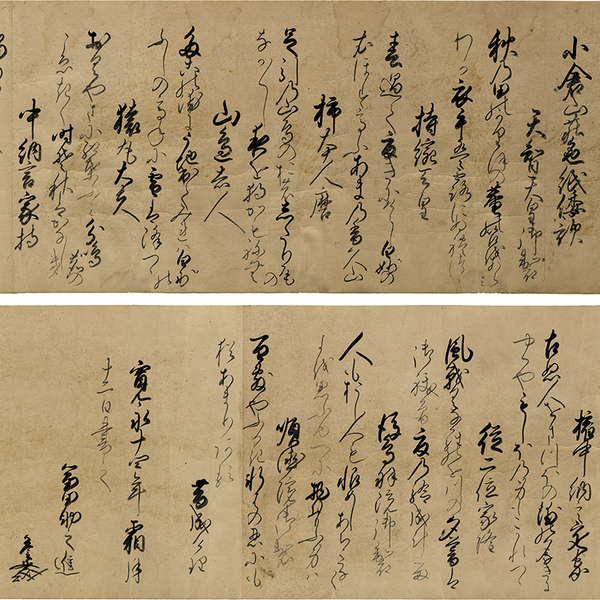 小倉山荘色紙倭歌
天智天皇御製
秋の田のかりほの庵の苫をあらみ
わか衣手は露にぬれつゝ
持統天皇
春過て夏きにけらし白妙の
衣ほすてふあまの香久山
柿本人麿
足引の山鳥の尾のしたりおの
なか〳〵し夜を独かもねむ
山邊赤人
田子の浦にうち出てみれは白妙の
ふしの高ねに雪は降つゝ
猿丸大夫
おく山に紅葉ふみ分鳴鹿の
こゑきく時そ秋はかなしき
中納言家持
権中納言定家
こぬ人をまつほの浦の夕なきに
やくやもしほの身もこかれつゝ
従二位家隆
風そよくならの小川の夕暮は
御祓そ夏のしるし成ける
後鳥羽院御製
人もおし人も恨めしあちきなく
よを思ふゆへに物おもふ身は
順徳院御製
百敷やふるき軒はの忍にも
猶あまりある
昔成けり
寛永十四年霜月
十二日書之